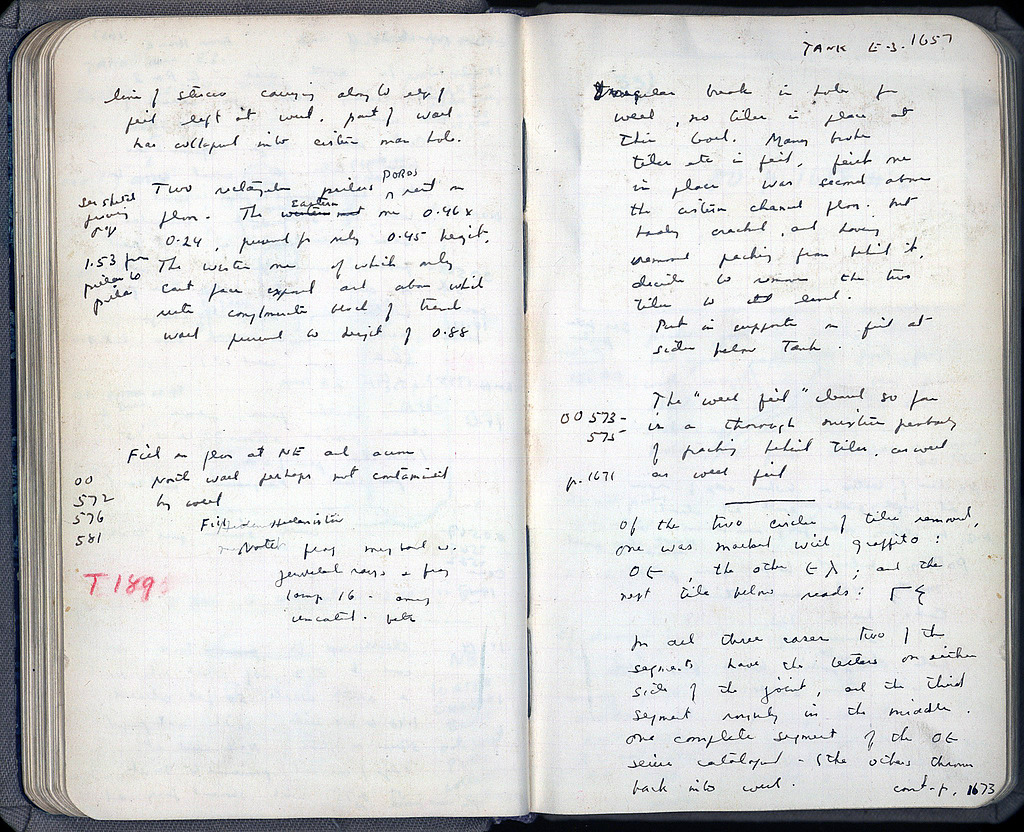 line of stucco carrying along to edge of
fill left at well. part of wall
has collapsed into cistern man hole.
POROS
Two rectangular pillars ^ rest on
eastern
floor. The western one 0.46 x
0.24, preserved for only 0.45 height.
1.53 from
pillar to
pillar
The western one of which only
east face exposed and above which
rests conglomerate block of
wall preserved to height of 0.88
Fill on floor at NE and across
North wall perhaps not contaminated
by well
00
572
576
581
Hellenistic
Note: frag
rays + frag
lamp 16 - 
T 189
TANK E-3. 1657
Irregular break in hole for
well, no tiles in place at
this level. Many broken
tiles etc in fill, first one
in place was second above
the cistern channel floor. but
badly cracked, and having
removed packing from behind it,
decide to remove the two
tiles to level.
Put in supports on fill at
sides below Tank.
The "well fill" cleared so far
is a thorough mixture probably
of packing behind tiles, as well
as well fill
00 573-
575
p. 1671
Of the two circles of tiles removed,
one was marked with graffito:
ΟΕ, the other ΕΛ; and the
next tile below reads: ΓΕ
In all three cases two of the
segments have the letters on either
side of the joint, and the third
segment roughly in the middle.
One complete segment of the ΟΕ
series catalogued - (the others thrown
back into well.
cont. p. 1673